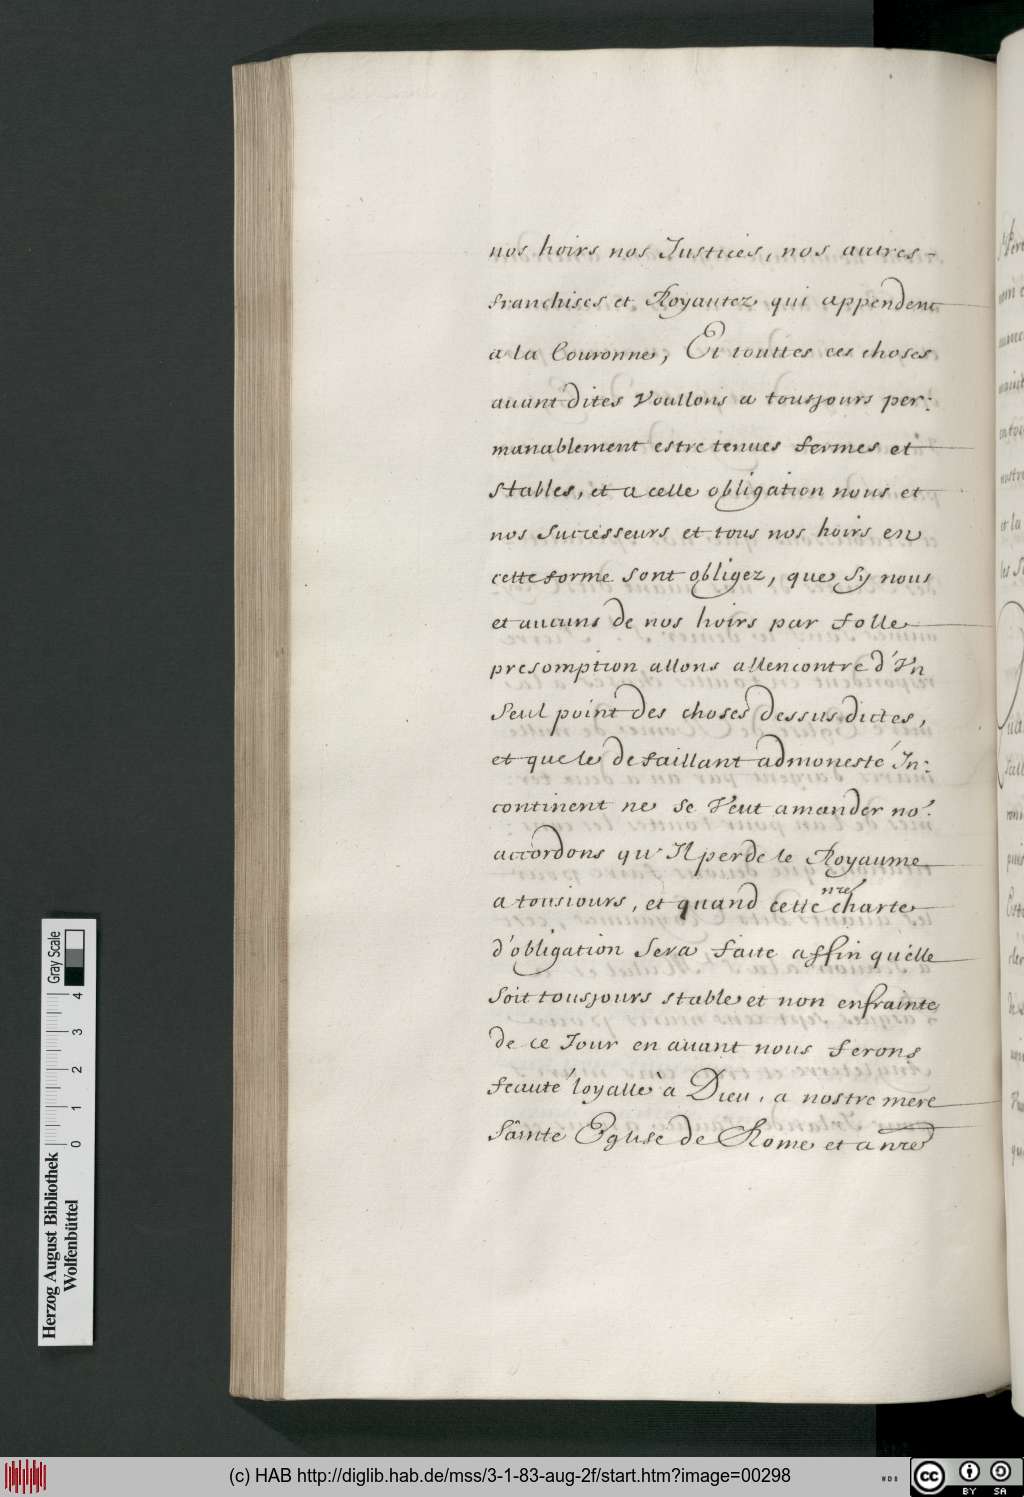 nos hoirs nos Justices, nos autres
franchises et Royautez qui appendent
a la Couronne, Et touttes ces choses
auant dites Voullons a tousjours per:
manablement estre tenues fermes et
stables, et a celle obligation nous et
nos Successeurs et tous nos hoirs en
cette forme sont obligez, que Sy nous
et aucuns de nos hoirs par folle
presomption allons allencontre d'Vn
Seul point des choses dessus dictes,
et que le defaillant admonesté In:
continent ne se Veut amander no.
accordons qu'Il perde le Royaume
a tousiours, et quand cette nre charte
d'obligation Sera faite affin qu'elle
soit tousjours stable et non enfrainte
de ce Jour en auant nous ferons
feauté loyalle à Dieu, a nostre mere
Sainte Eglise de Rome et a nre
Herzog August Bibliothek
Wolfenbüttel
Gray Scale
0 1 2 3 4
(c) HAB http://diglib.hab.de/mss/3-1-83-aug-2f/start.htm?image=00298
WDB
CC BY SA